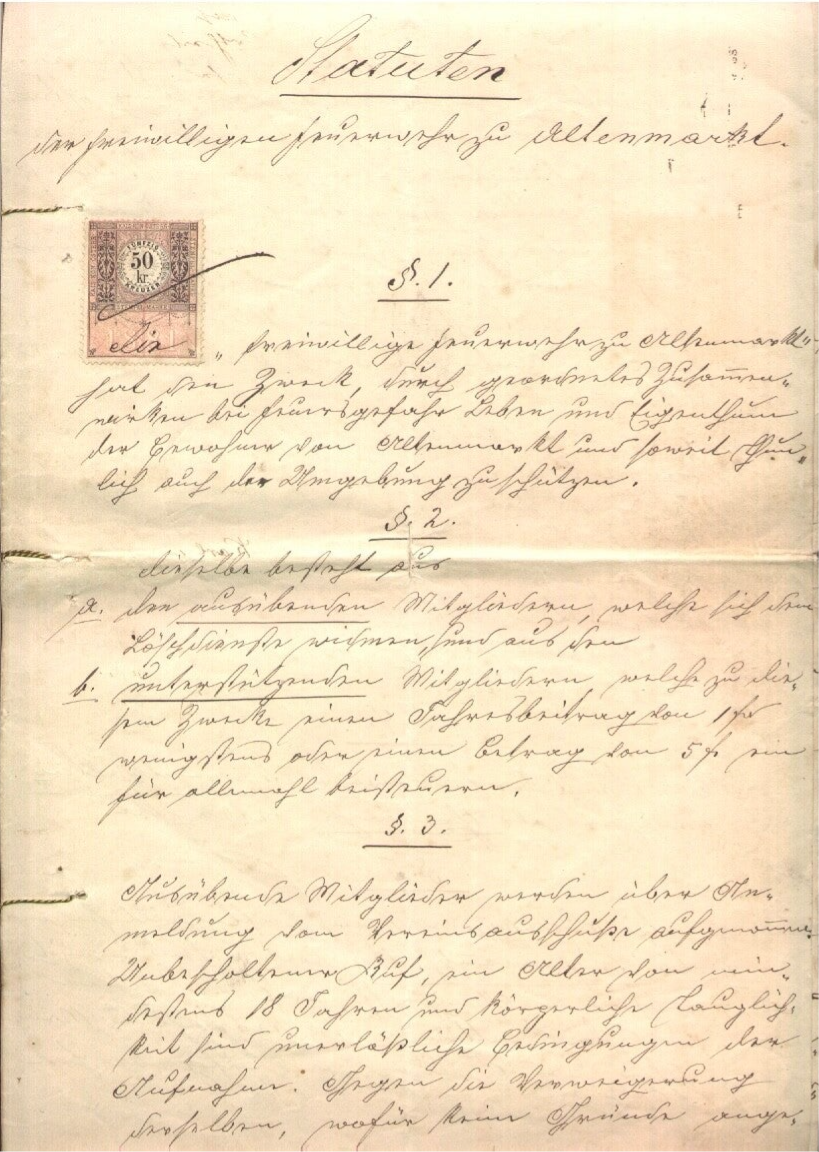 Statuten
der freiwilligen Feuerwehr zu Altenmarkt.
50
kr.
§. 1.
Die „freiwillige Feuerwehr zu Altenmarkt"
hat den Zweck, durch geordnetes Zusammen-
wirken bei Feuersgefahr Leben und Eigenthum
der Bewohner von Altenmarkt und soweit thun-
lich auch der Umgebung zu schützen.
§. 2.
Dieselbe besteht aus
a. den ausübenden Mitgliedern, welche sich dem
Löschdienste widmen, und aus den
b. unterstützenden Mitgliedern, welche zu die-
sem Zwecke einen Jahresbeitrag von 1 fl
wenigstens oder einen Betrag von 5 fl. ein
für allemahl beisteuern.
§. 3.
Ausübende Mitglieder werden über An-
meldung vom Vereinsausschuße aufgenommen.
Unbescholtener Ruf, ein Alter von min-
destens 18 Jahren und körperliche Tauglich-
keit sind unerläßliche Bedingungen der
Aufnahme. Gegen die Verweigerung
derselben, wofür keine Gründe ange-